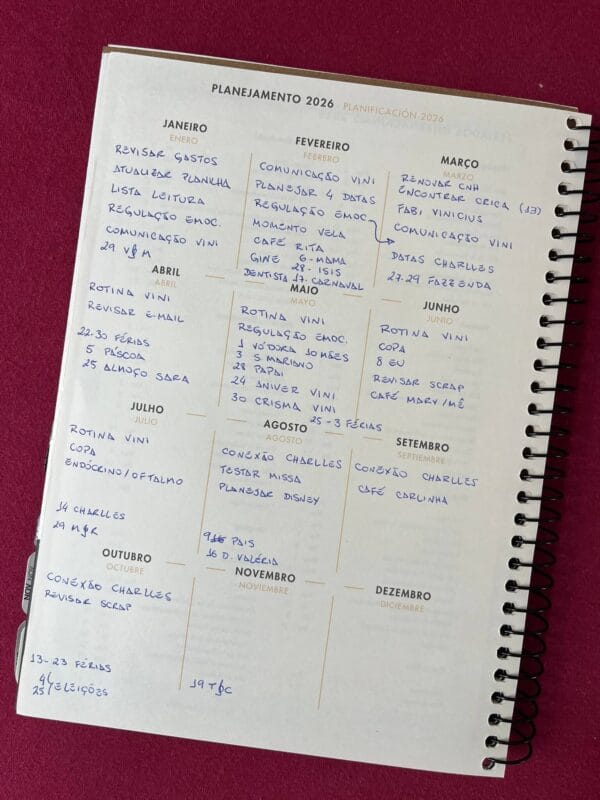 PLANEJAMENTO 2026 · PLANIFICACIÓN 2026
JANEIRO
ENERO
REVISAR GASTOS
ATUALIZAR PLANILHA
LISTA LEITURA
REGULAÇÃO EMOC.
COMUNICAÇÃO VINI
29 V&M
FEVEREIRO
FEBRERO
COMUNICAÇÃO VINI
PLANEJAR 4 DATAS
REGULAÇÃO EMOC
MOMENTO VELA
CAFÉ RITA
GINE 6-MAMA
28-ISIS
DENTISTA 17-CARNAVAL
MARÇO
MARZO
RENOVAR CNH
ENCONTRAR ERICA (13)
FABI VINICIUS
COMUNICAÇÃO VINI
DATAS CHARLLES
27-29 FAZENDA
ABRIL
ABRIL
ROTINA VINI
REVISAR E-MAIL
22-30 FÉRIAS
5 PÁSCOA
25 ALMOÇO SARA
MAIO
MAYO
ROTINA VINI
REGULAÇÃO EMOC.
1 VÓ DORA 10 MÃES
3 S MARIANO
28 PAPAI
24 ANIVER VINI
30 CRISMA VINI
25-3 FÉRIAS
JUNHO
JUNIO
ROTINA VINI
COPA
8 EU
REVISAR SCRAP
CAFÉ MARY/MÊ
JULHO
JULIO
ROTINA VINI
COPA
ENDÓCRINO/OFTALMO
14 CHARLLES
29 M&R
AGOSTO
AGOSTO
CONEXÃO CHARLLES
TESTAR MISSA
PLANEJAR DISNEY
9 PAIS
16 D. VALÉRIA
SETEMBRO
SEPTIEMBRE
CONEXÃO CHARLLES
CAFÉ CARLINHA
OUTUBRO
OCTUBRE
CONEXÃO CHARLLES
REVISAR SCRAP
13-23 FÉRIAS
4/
25/ELEIÇÕES
NOVEMBRO
NOVIEMBRE
19 T&C
DEZEMBRO
DICIEMBRE